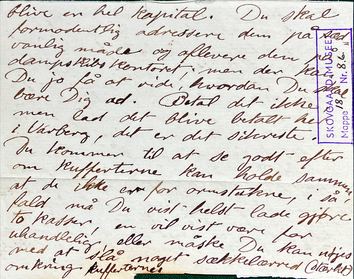 blive en hel kapital. Du skal
formodentlig adressere dem på sæd
vanlig måde og aflevere dem på
dampskibskontoret; men der kan
Du jo få at vide, hvordan Du skal
bære Dig ad. Betal det ikke
men lad det blive betalt her
i Varberg, det er det sikreste.
Du kommer til at se godt efter
om kufferterne kan holde sammen,
at de ikke er for
fald må Du vist helst lade gjøre
to kasser, en vil vist være for
uhandelig, eller måske Du kan nøjes
med at slå noget sækkelærred (stærkt)
omkring kufferterne.
SKOVGAARD MUSEET
Mappe 18 Nr. 86